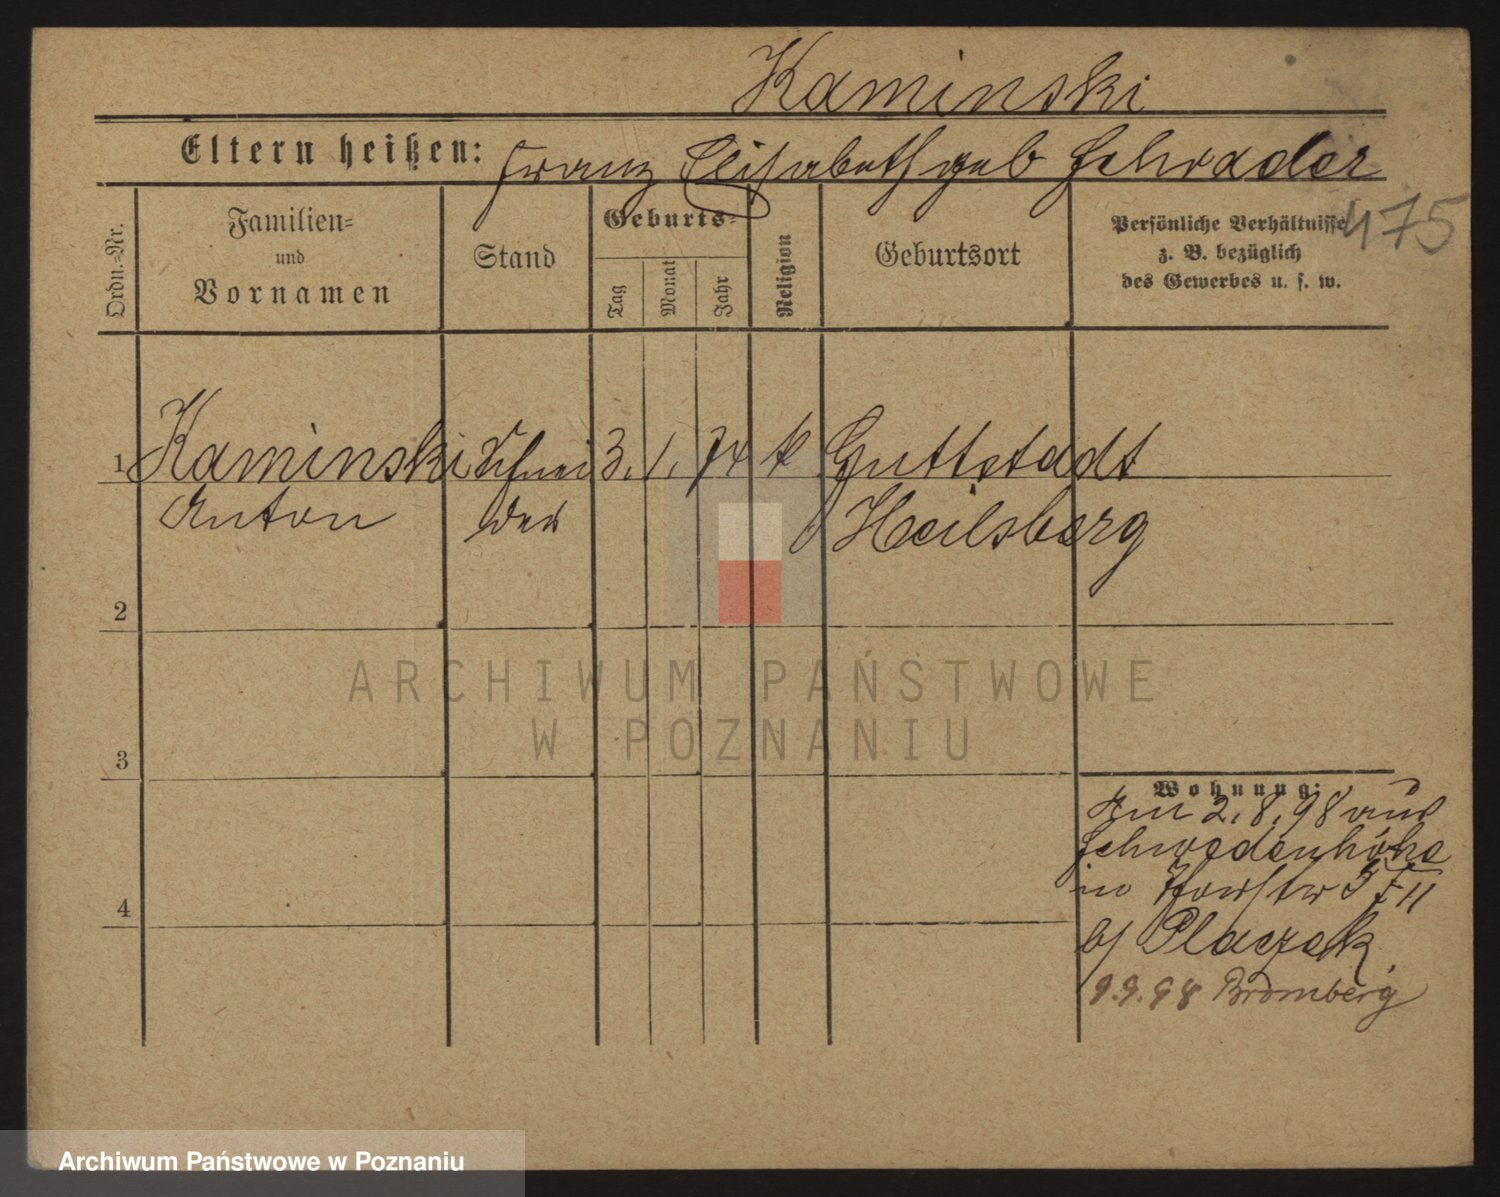 Kaminski
Eltern heißen: Franz Elisabeth geb Schrader
475
Ordn.-Nr.
Familien-
und
Vornamen
Stand
Geburts-
Tag
Monat
Jahr
Religion
Geburtsort
Persönliche Verhältnisse
z. B. bezüglich
des Gewerbes u. s. w.
1 Kaminski Schnei 3. 1. 74 k Guttstadt
Anton der Heilsberg
2
3
4
Wohnung:
Am 2.8.98 aus
Schwedenhöhe
in 5 II
b/ Placzek
9.9.98 Bromberg
ARCHIWUM PAŃSTWOWE
W POZNANIU
Archiwum Państwowe w Poznaniu